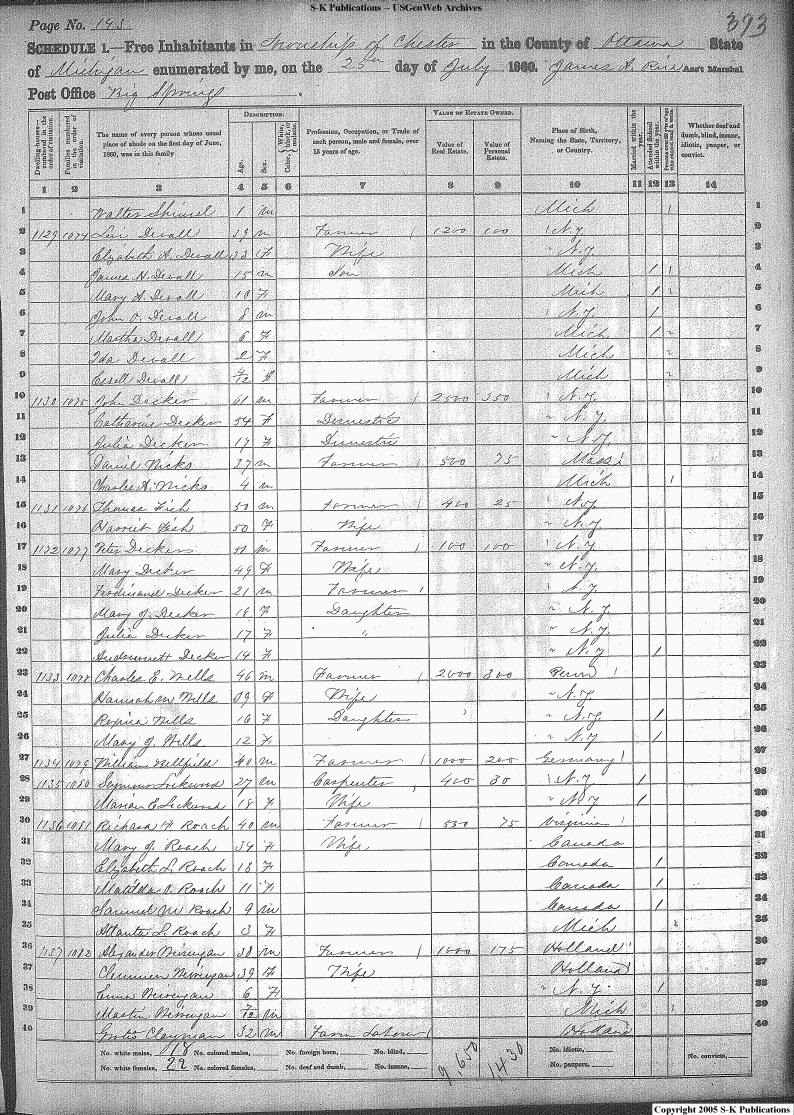 S-K Publications – USGenWeb Archives
Page No. 143
393
SCHEDULE 1.—Free Inhabitants in Township of Chester in the County of Ottawa State
of Michigan enumerated by me, on the 25th day of July 1860. James A. Rice Ass't Marshal
Post Office Big Springs.
Dwelling-houses—numbered in the order of visitation.
Families numbered in the order of visitation.
The name of every person whose usual place of abode on the first day of June, 1860, was in this family
DESCRIPTION.
Age.
Sex.
Color, White, black, or mulatto.
Profession, Occupation, or Trade of each person, male and female, over 15 years of age.
VALUE OF ESTATE OWNED.
Value of Real Estate.
Value of Personal Estate.
Place of Birth, Naming the State, Territory, or Country.
Married within the year.
Attended School within the year.
Whether deaf and dumb, blind, insane, idiotic, pauper, or convict.
1 2 3 4 5 6 7 8 9 10 11 12 13 14
1 Walter 1 m Mich 1 1
2 1129 1074 Levi Devall 39 m Farmer 1 1200 100 N.Y. 2
3 Elizabeth A. Devall 33 F Wife " N.Y. 3
4 James H. Devall 15 m Son Mich 1 1 4
5 Mary A. Devall 10 F Mich 1 2 5
6 John O. Devall 8 m N.Y. 1 6
7 Martha Devall 6 F Mich 1 2 7
8 Ida Devall 2 F Mich 2 8
9 Devall 4/12 Mich 2 9
10 1130 1075 John Decker 61 m Farmer 1 2500 350 N.Y. 10
11 Catharine Decker 54 F Domestic " N.Y. 11
12 Julia Decker 17 F Domestic " N.Y. 12
13 Daniel Nicks 37 m Farmer 1 500 75 Mass 13
14 Charles A. Nicks 4 m Mich 1 14
15 1131 1076 Thomas Fish 50 m Farmer 1 400 25 N.Y. 15
16 Harriet Fish 50 F Wife " N.Y. 16
17 1132 1077 Peter Decker m Farmer 1 100 100 N.Y. 17
18 Mary Decker 49 F Wife " N.Y. 18
19 Ferdinand Decker 21 m Farmer 1 N.Y. 19
20 Mary J. Decker 18 F Daughter " N.Y. 20
21 Julia Decker 17 F " " N.Y. 21
22 Decker 14 F " N.Y. 1 22
23 1133 1078 Charles E. Wells 46 m Farmer 1 2000 300 Penn 1 23
24 Hannah M Wells 39 F Wife " N.Y. 24
25 Regina Wells 16 F Daughter " N.Y. 1 25
26 Mary J. Wells 12 F " N.Y. 1 26
27 1134 1079 William Millfield 40 m Farmer 1 1000 200 Germany 1 27
28 1135 1080 Seymour Lockwood 27 m Carpenter 1 400 30 N.Y. 1 28
29 Marion E. Lockwood 18 F Wife " N.Y. 1 29
30 1136 1081 Richard H Roach 40 m Farmer 1 530 75 Virginia 1 30
31 Mary J. Roach 34 F Wife Canada 31
32 Elizabeth L. Roach 13 F Canada 1 32
33 Matilda O. Roach 11 F Canada 1 33
34 Samuel M Roach 9 m Canada 1 34
35 Atlanta L. Roach 3 F Mich 2 35
36 1137 1082 Alexander 38 m Farmer 1 1000 175 Holland 1 36
37 39 F Wife Holland 37
38 Emma 6 F " N.Y. 1 38
39 Martin 7/12 m Mich 39
40 Clayman 32 m Farm Laborer Holland 40
No. white males, 18 No. colored males, No. foreign born, No. blind, 9,650 1,430 No. idiotic, No. convicts,
No. white females, 22 No. colored females, No. deaf and dumb, No. insane, No. paupers,
Copyright 2005 S-K Publications